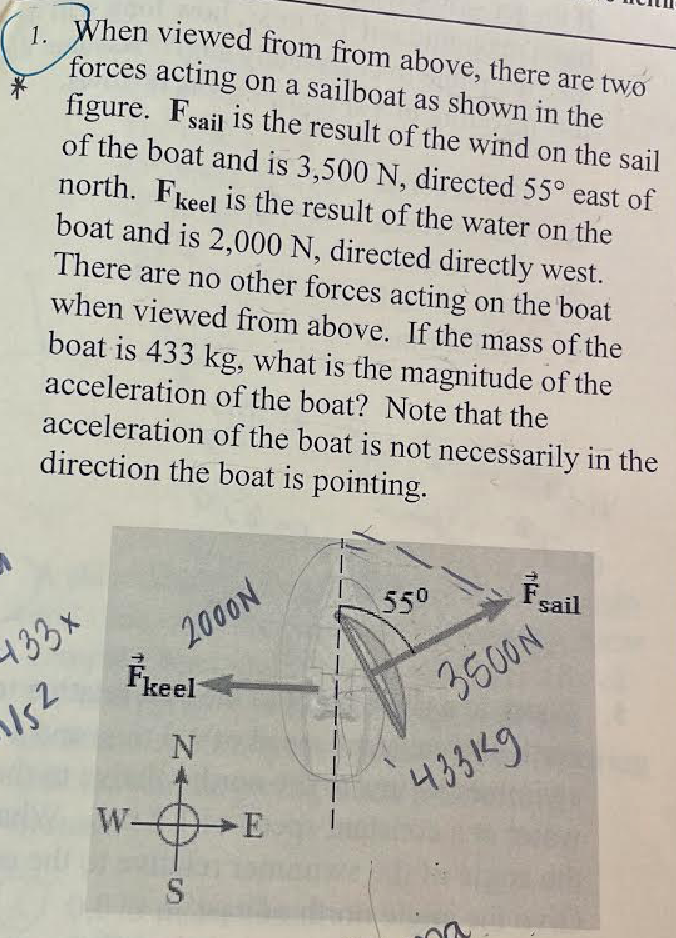 1. When viewed from from above, there are two
forces acting on a sailboat as shown in the
figure. Fsail is the result of the wind on the sail
of the boat and is 3,500 N, directed 55° east of
north. Fkeel is the result of the water on the
boat and is 2,000 N, directed directly west.
There are no other forces acting on the boat
when viewed from above. If the mass of the
boat is 433 kg, what is the magnitude of the
acceleration of the boat? Note that the
acceleration of the boat is not necessarily in the
direction the boat is pointing.
55⁰
Fsail
2000N
433x
3500N
Fkeel
433kg
N
W E
S